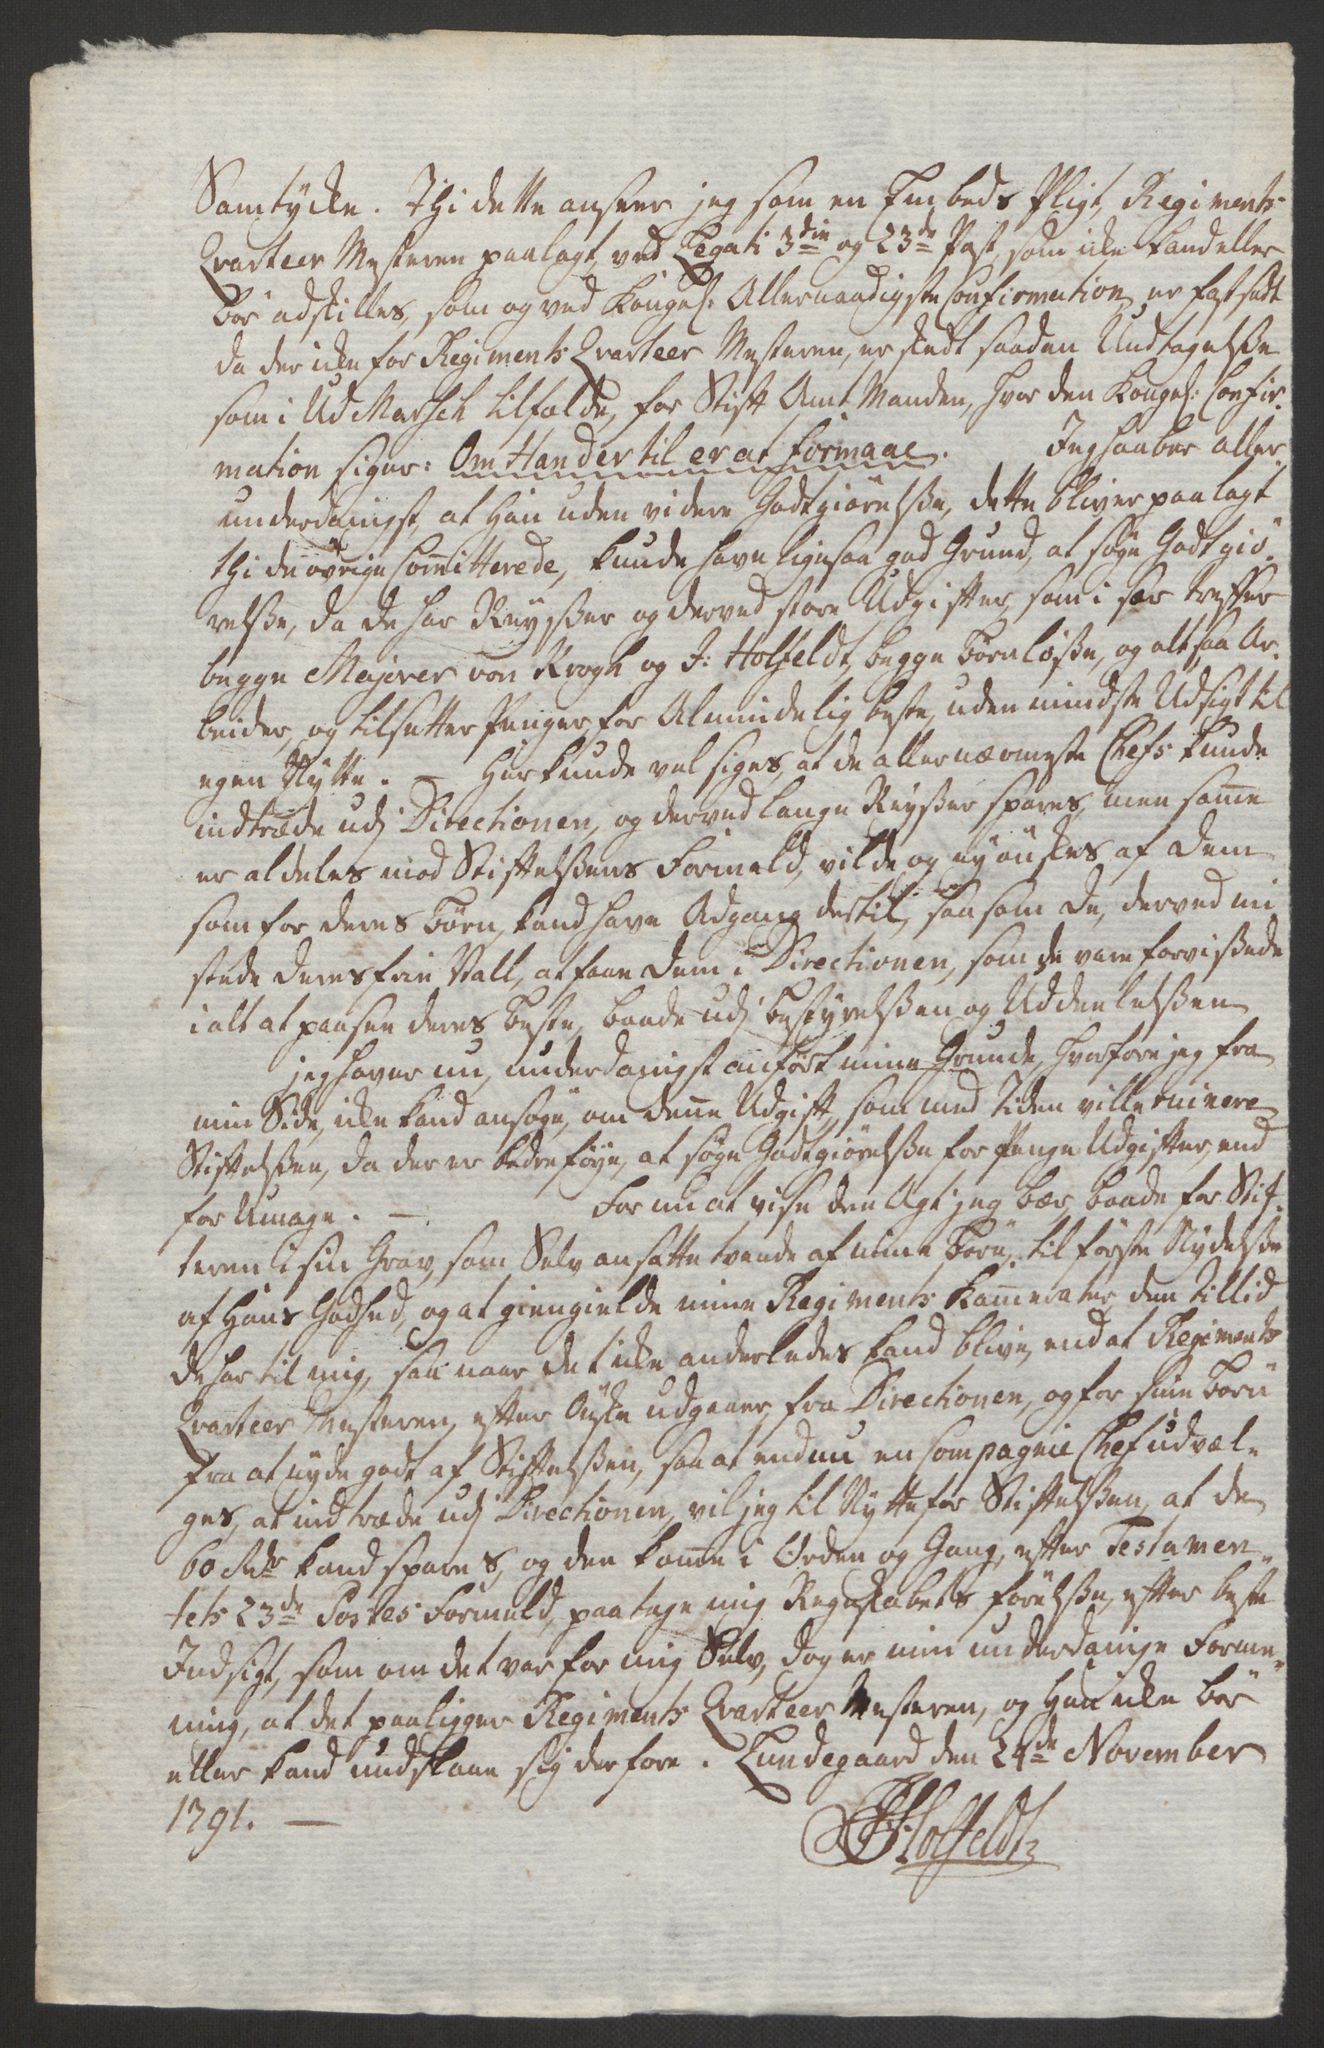 Samtÿcke. Thi dette anseer jeg som en Embeds Pligt, Regiments
Qvarteer Mesteren paalagt, ved Legati 3die og 23de Post, som icke kand eller
bör adskilles, som og ved Kongel: Allernaadigste Confirmation er fastsadt
da der icke for Regiments Qvarteer Mesteren, er skedt saadan Undtagelsße
som i Ud Marsch tilfælde, for Stift Amt Manden, hvor den Kongel: Confir-
mation siger: Om Han der til er at formaae. Jeg haaber aller
underdanigst, at Han uden videre Godtgiörelsße, dette bliver paalagt
thi de övrige Committerede, kunde have ligesaa god Grund, at söge Godtgiö-
relsße, da de har Reysßer og derved store Udgifter, som i sær treffer
begge Majorer von Krogh og J: Holfeldt, begge Börnlösße, og altsaa Ar-
beider, og tilsetter Penger, for Almindelig beste, uden mindste Udsigt til
egen Nÿtte. — Her kunde vel siges, at de allernærmeste Chefs kunde
indtræde udj Directionen, og derved lange Reysßer spares, men samme
er aldeles mod Stiftelsßens Formeld, vilde og ey önskes af dem
som for deres Börn, kand have Adgang dertil, saasom de, derved mi
stede deres frie Vall, at faae dem i Directionen, som de vare forvissede
i alt at paasee deres beste, baade udj bestyrelsßen og Uddeelelsßen
jeg haver nu, underdanigst anfört mine Grunde, hvorfore jeg fra
min Side, icke kand ansöge, om denne Udgift, som med Tiden ville ruinere
Stiftelsßen, da der er bedre föye, at söge Godtgiörelsße for Penge Udgifter, end
for Umage. — For nu at vise den Agt jeg bær, baade for Stif-
teren i sin Grav, som Selv ansatte tvende af mine Börn, til förste Nydelsße
af Hans Godhed, og at giengielde mine Regiments Kammerater, den tillid
de har til mig, saa naar det icke anderledes kand blive, end at Regiments
Qvarteer Mesteren, efter Önske udgaaer fra Directionen, og for sine Börn
fra at nyde godt af Stiftelsßen, saa at endnu en Compagnie Chef udvæl-
ges, at indtræde udj Directionen, vil jeg til Nytte for Stiftelsßen, at de
60 Rdr kand spares, og den komme i Orden og Gang, efter Testamen-
tets 23de Postes Formeld, paatage mig Regnskabets förelsße, efter beste
Indsigt, som om det var for mig Selv, dog er min underdanige Forme-
ning, at det paaligger Regiments Qvarteer Mesteren, og Han icke bör
eller kand undslaae sig derfore. Lundegaard den 24de November
1791. —
JHolfeldt